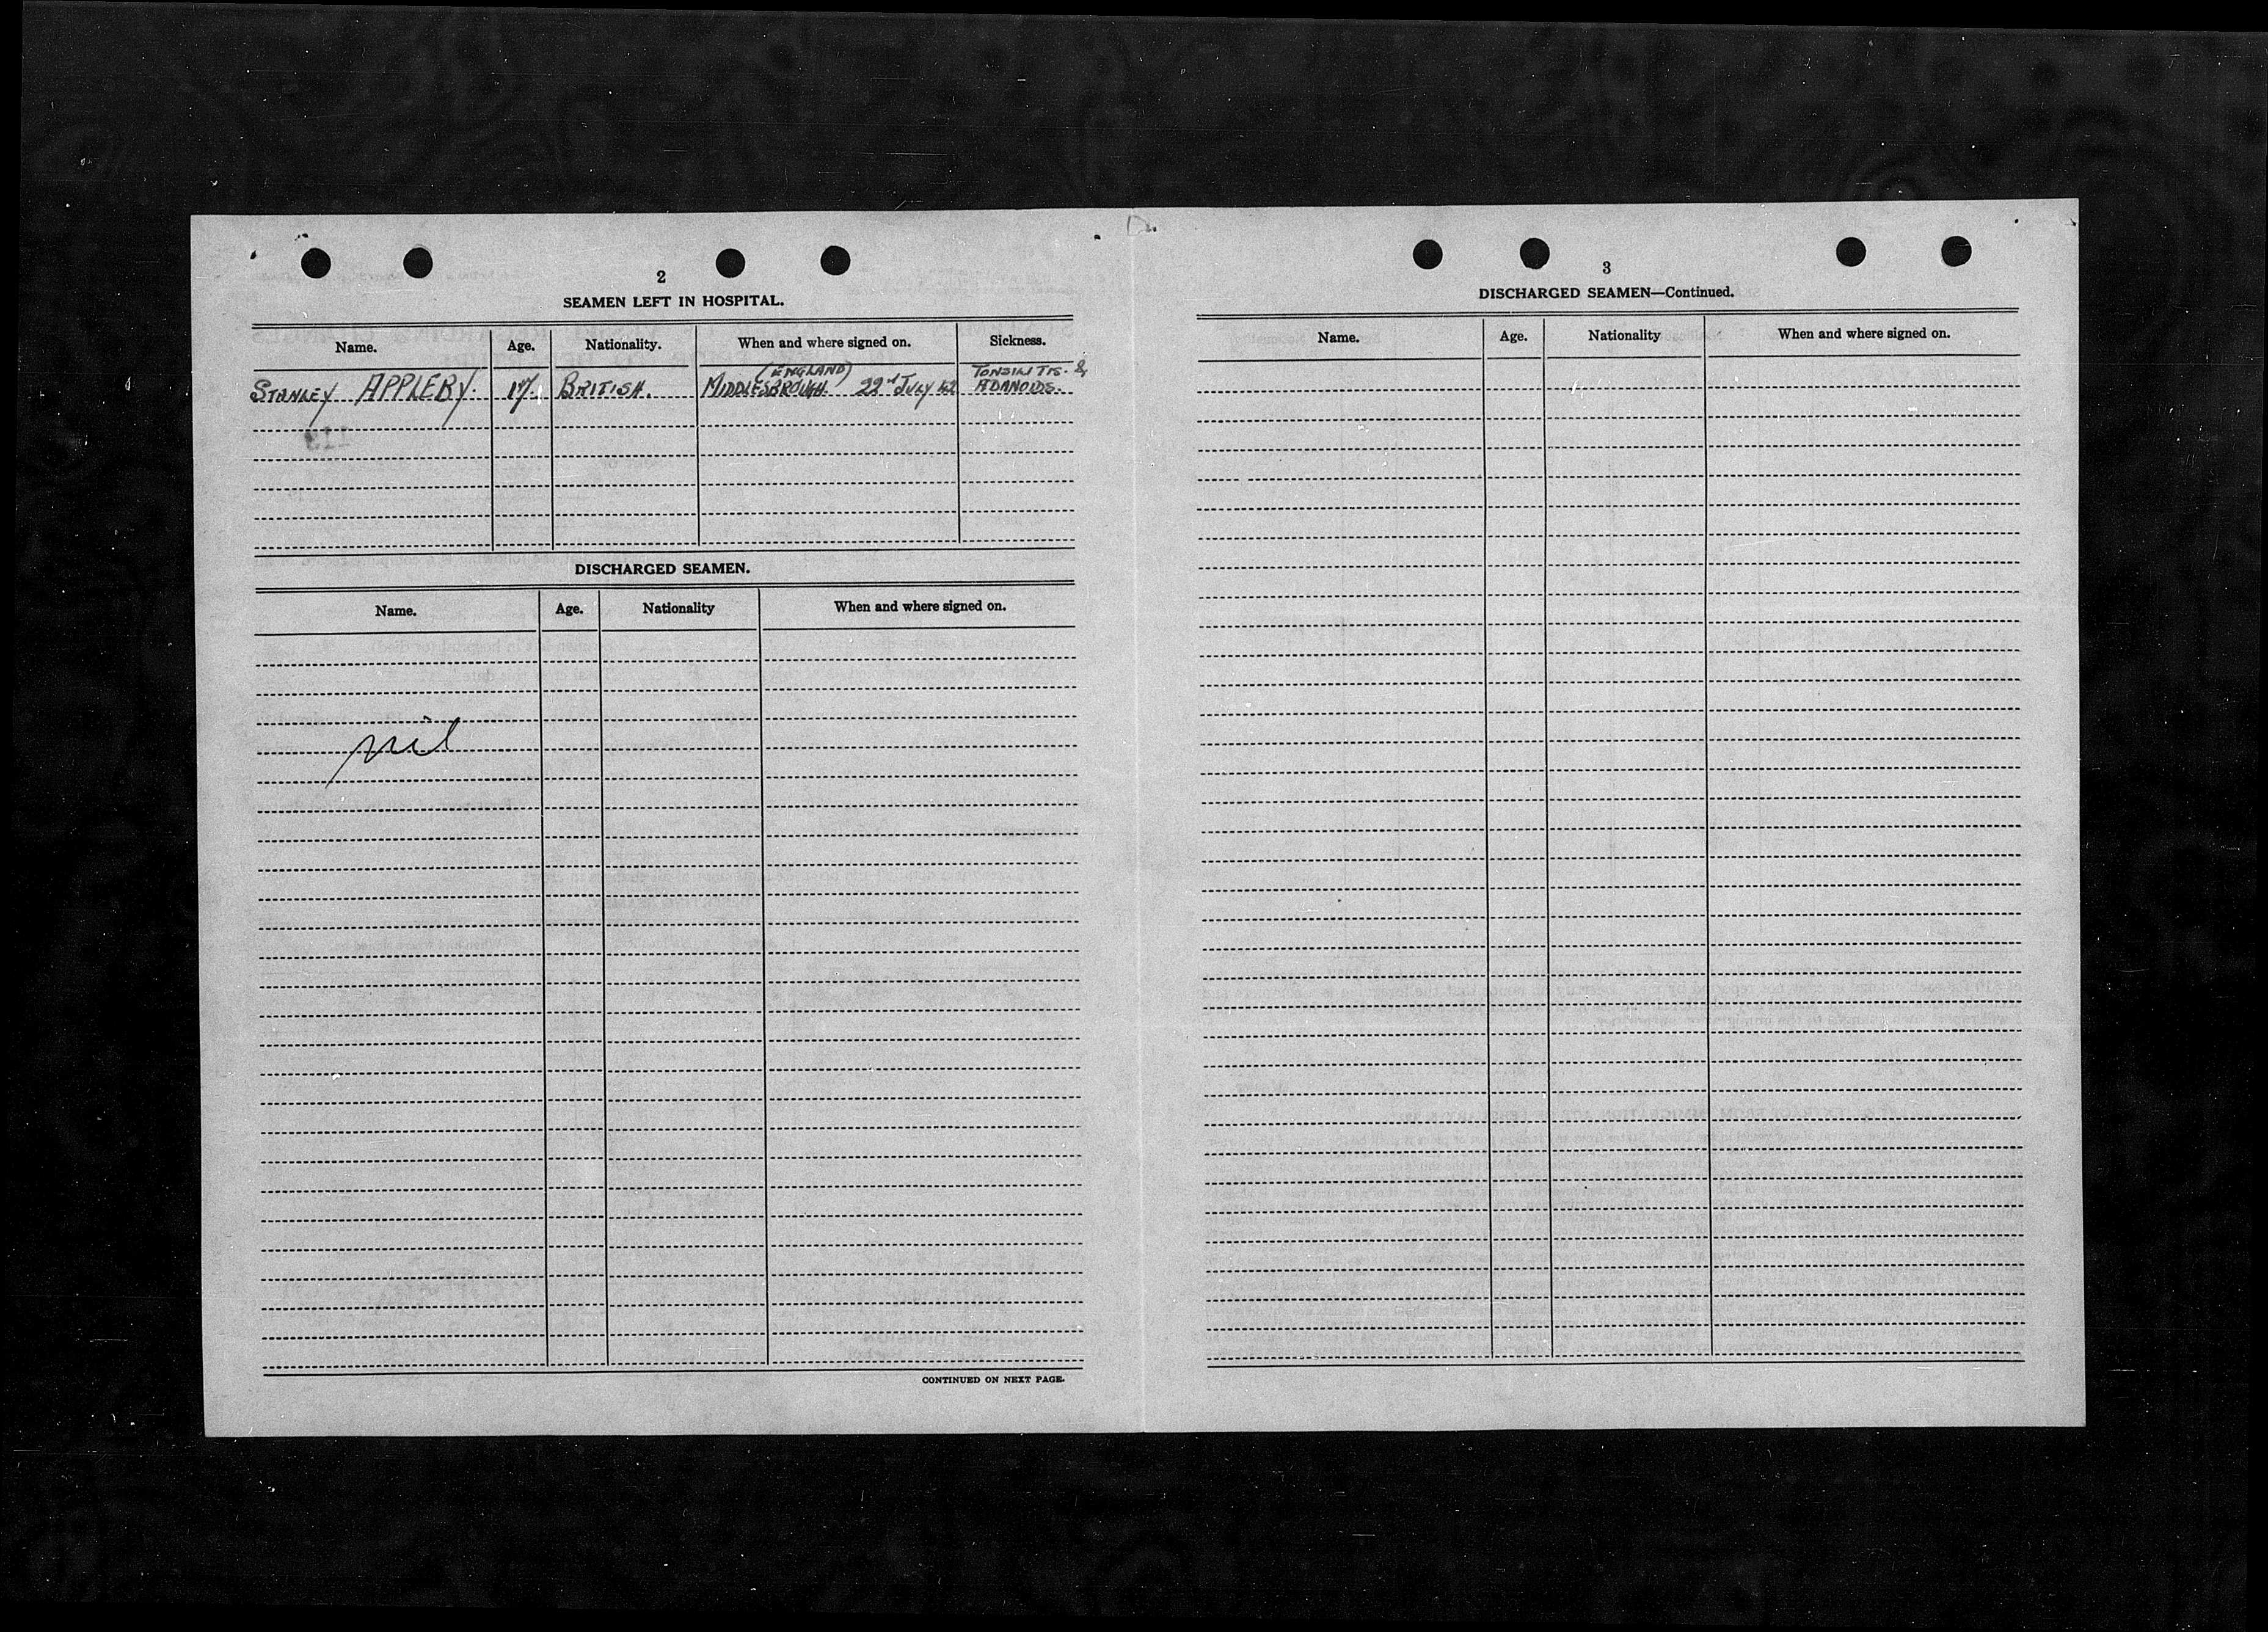 2
SEAMEN LEFT IN HOSPITAL.
Name. Age. Nationality. When and where signed on. Sickness.
(ENGLAND) TONSILITIS. &
STANLEY APPLEBY. 17. BRITISH. MIDDLESBROUGH. 22nd JULY 42 ADANOIDS.
DISCHARGED SEAMEN.
Name. Age. Nationality When and where signed on.
nil
CONTINUED ON NEXT PAGE.
3
DISCHARGED SEAMEN—Continued.
Name. Age. Nationality When and where signed on.